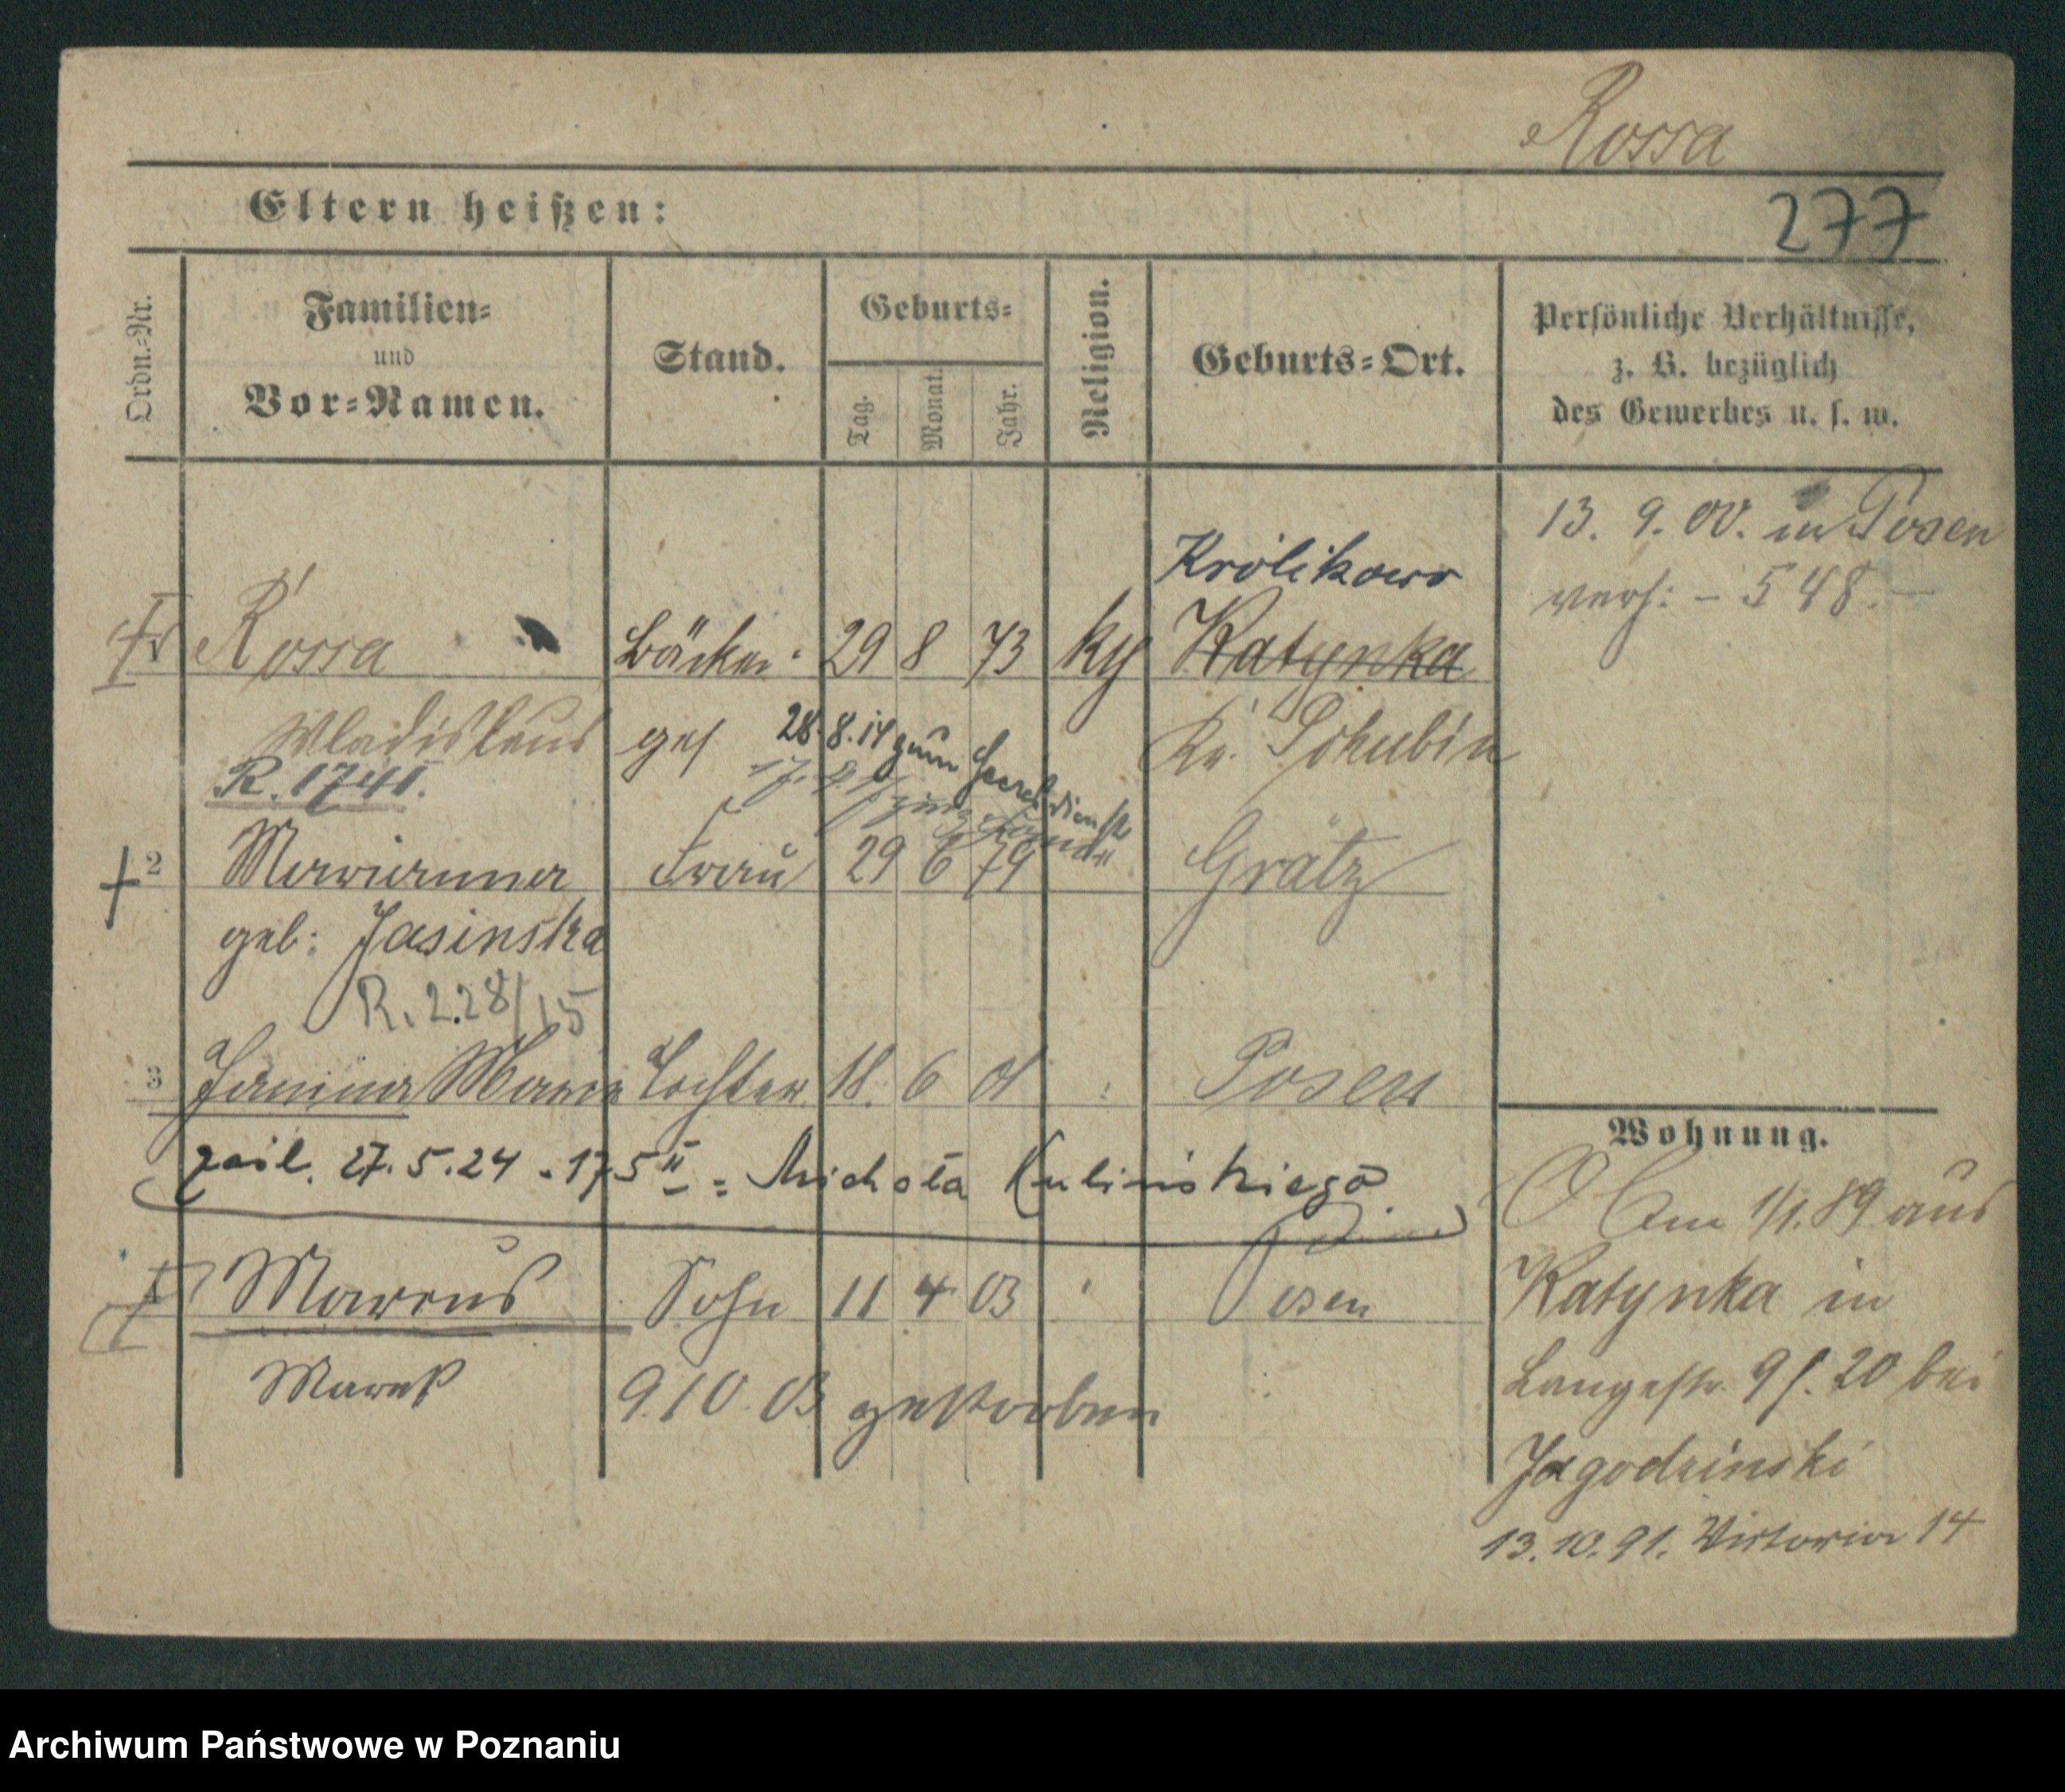 Rossa
277
Eltern heißen:
Ordn.-Nr.
Familien-
und
Vor-Namen.
Stand.
Geburts-
Tag.
Monat.
Jahr.
Religion.
Geburts-Ort.
Persönliche Verhältnisse,
z. B. bezüglich
des Gewerbes u. s. w.
13. 9. 00. in Posen
verh: - 548.
Królikowo
Rossa Bäcker 29 8 73 Katynka
Wladislaus ges Kr. Schubin
28.8.14 zum Heeresdienst
R. 1741.
2 Marianna Frau 29 6 79 Grätz
geb: Jasinska
R. 228/15
3 Janina Maria Tochter 18. 6 01 Posen
27.5.24 - 175
Marcus Sohn 11 4 03 Posen
Marek 9.10.03 gestorben
Wohnung.
Am 1/1.89 aus
Katynka in
Langestr. 9 20 bei
Jagodzinski
13.10.91. Victoria 14
Archiwum Państwowe w Poznaniu